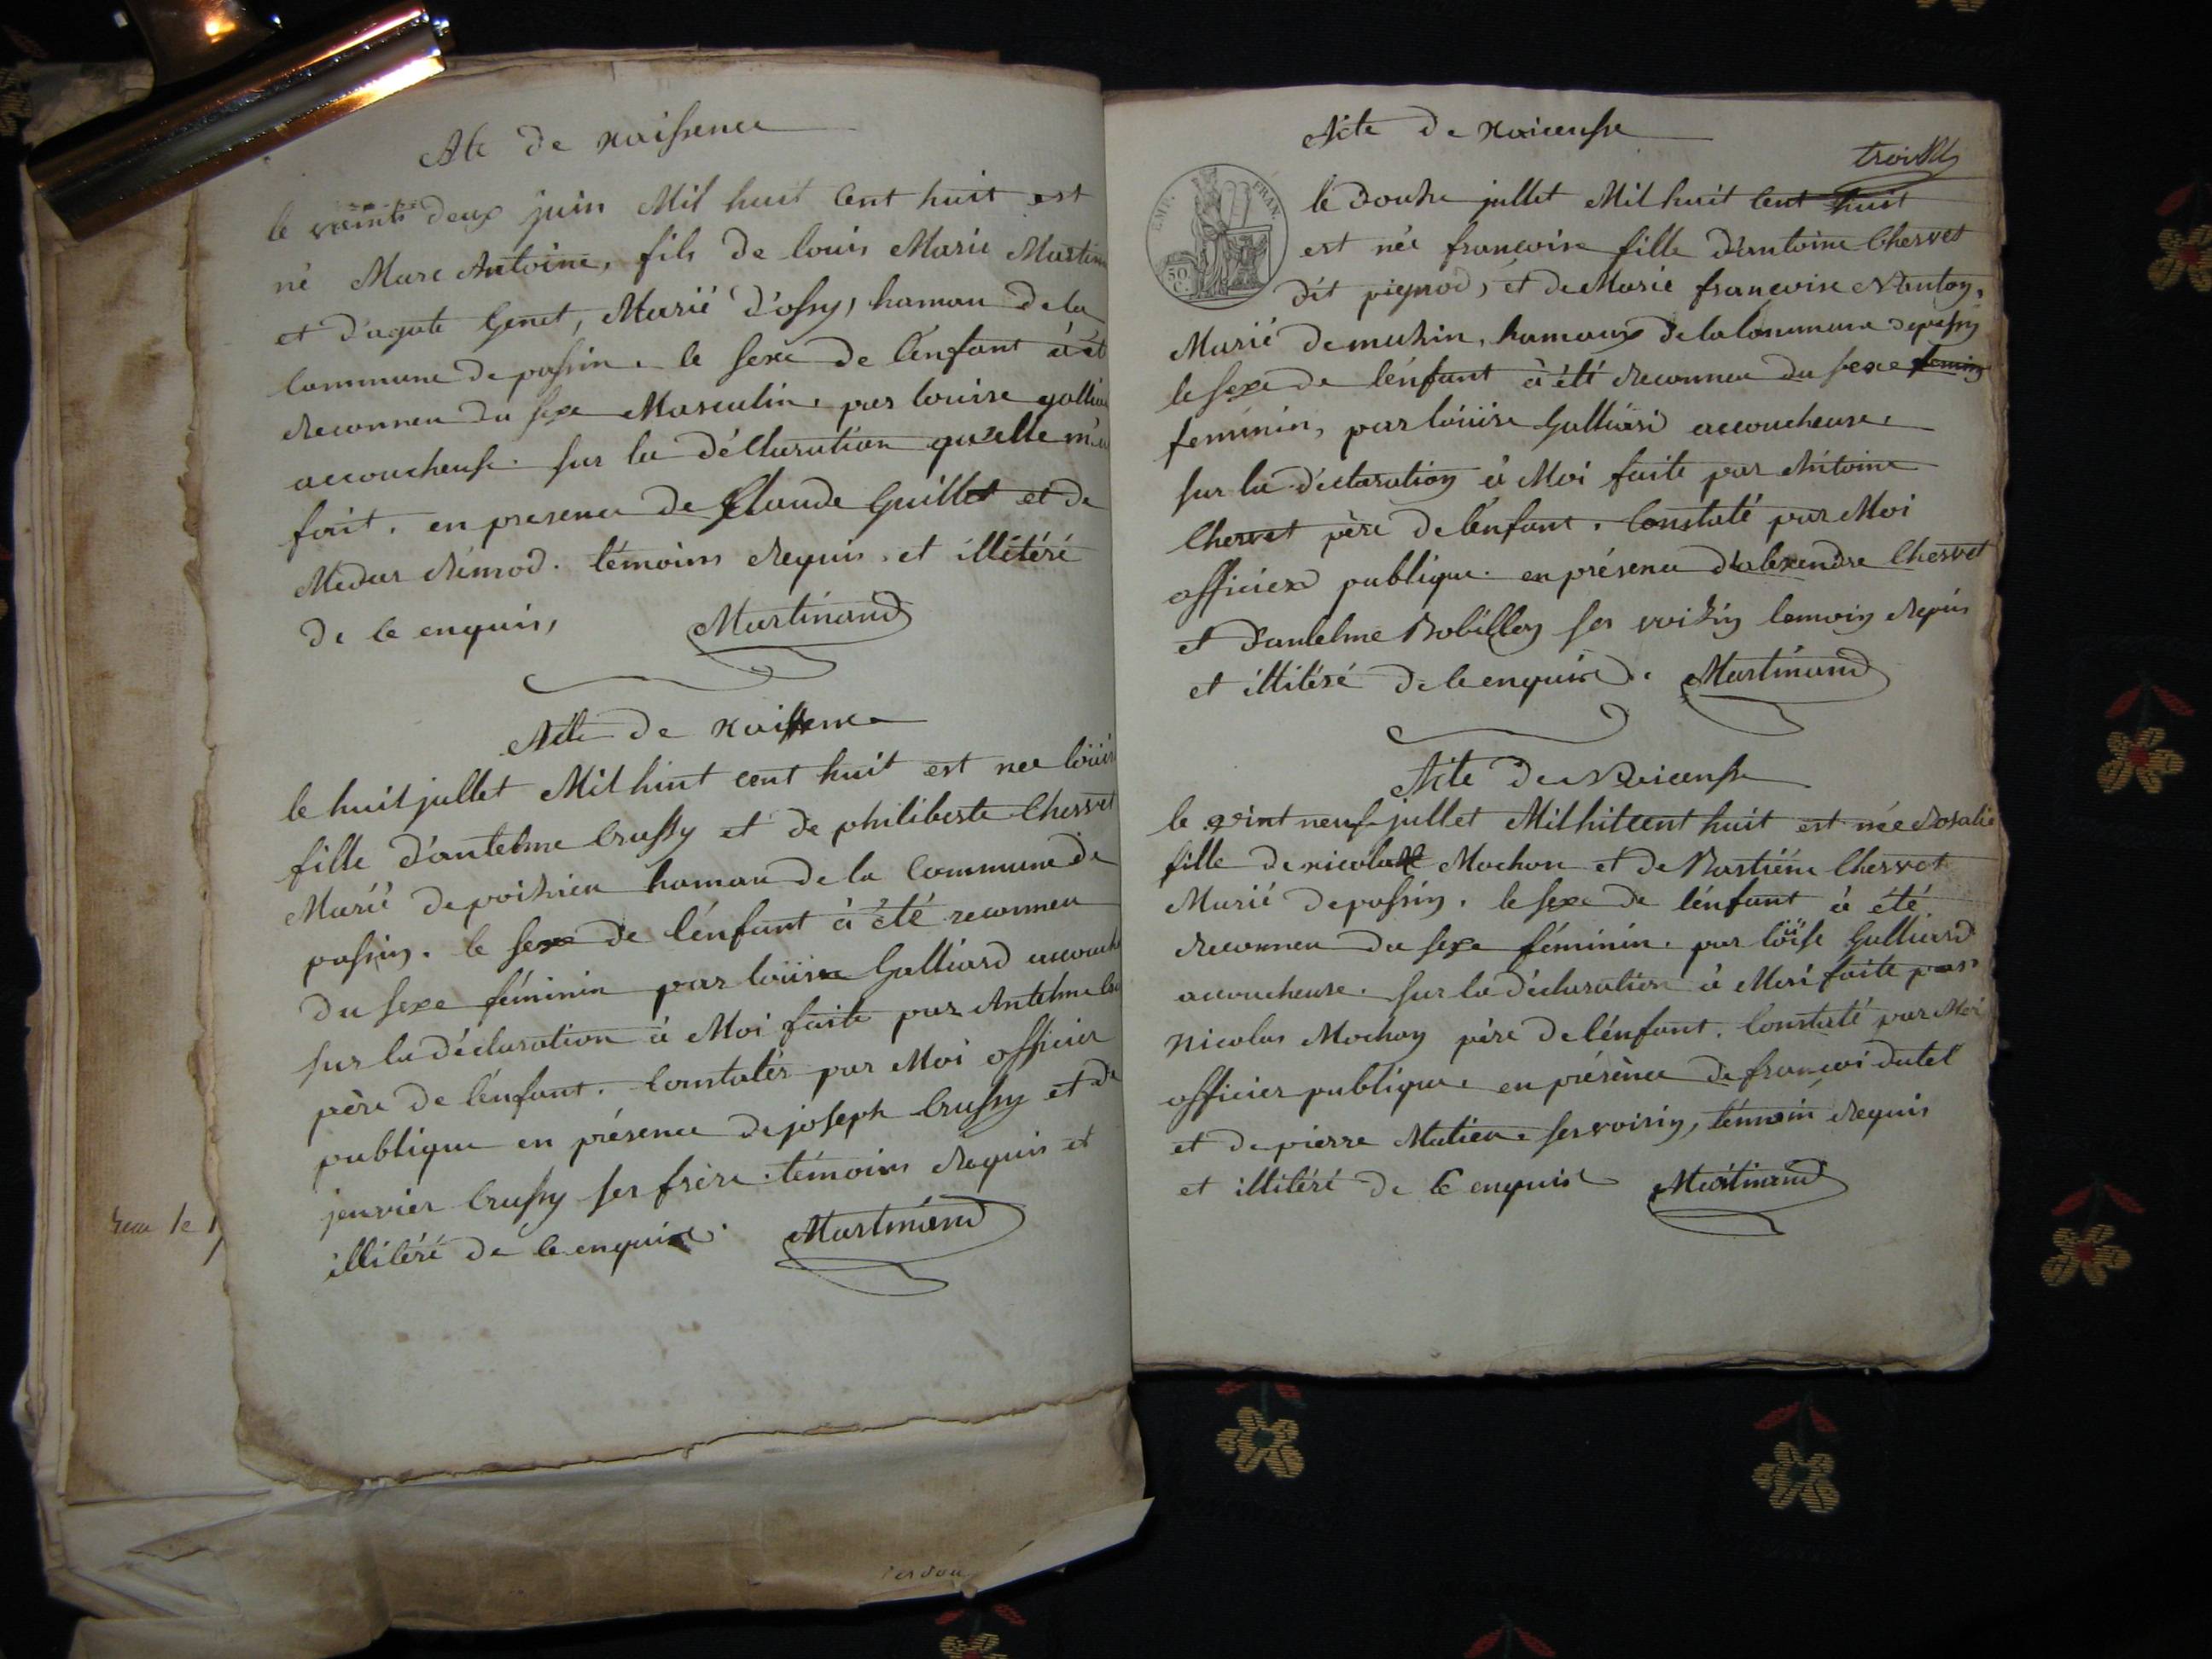 Acte de naissence
le veint deux juin Mil huit Cent huit est
né Marc Antoine, fils de louis Marie Martin
et d'agate Genet, Marié d'ossy, hamau de la
Commune de passin. le sexe de l'énfant à ét
reconneu du sexe Masculin. par louise gallia
accoucheuse. sur la déclaration qu'elle m'a
fait. en presence de Claude Guillet et de
Medar Rémod. témoins requis. et illitéré
de ce enquis, Martinand
Acte de naissence
le huit jullet Mil huit cent huit est nee loüis
fille d'antelme Crussy et de philiberte Chervet
Marié de poisieu hamau de la Commune de
passin. le sexe de l'énfant à été reconneu
du sexe féminin par loüise Galliard accouche
sur la déclaration à Moi faite par Antelme Cru
père de l'énfant. Constatés par Moi officier
publique en présence de joseph Crussy et de
janvier Crussy ses frère. témoins requis et
illitéré de ce enquise. Martinand
reau le
Acte de naicensse
trois
EMP. FRAN.
50 C.
le douze jullet Mil huit Cent huit
est née francoise fille d'antoine Chervet
dit pignod, et de Marie francoise Nantoy,
Marié de muzin, hamaux de la Commune de passin
le sexe de l'énfant à été reconneu du sexe femin
feminin, par loüise Galliard accoucheuse.
sur la déclaration à Moi faite par Antoine
Chervet père de l'énfant. Constaté par Moi
officier publique. en présence d'alexendre Chervet
et d'antelme Bobillon ses voizin temoin requis
et illitéré de ce enquire. Martinand
Acte de Naicensse
le veint neuf jullet Mil hit cent huit est née Rosalie
fille de nicolas Mochon et de Bastiéne Chervet
Marié de passin. le sexe de l'énfant à été
reconneu du sexe féminin. par loïise Galliard
accoucheuse. sur la déclaration à Moi faite par
Nicolas Mochon père de l'énfant. Constaté par Moi
officier publique. en présence de francoi dutel
et de pierre Matieu. ses voisin, témoin requis
et illitéré de Ce enquis Martinand